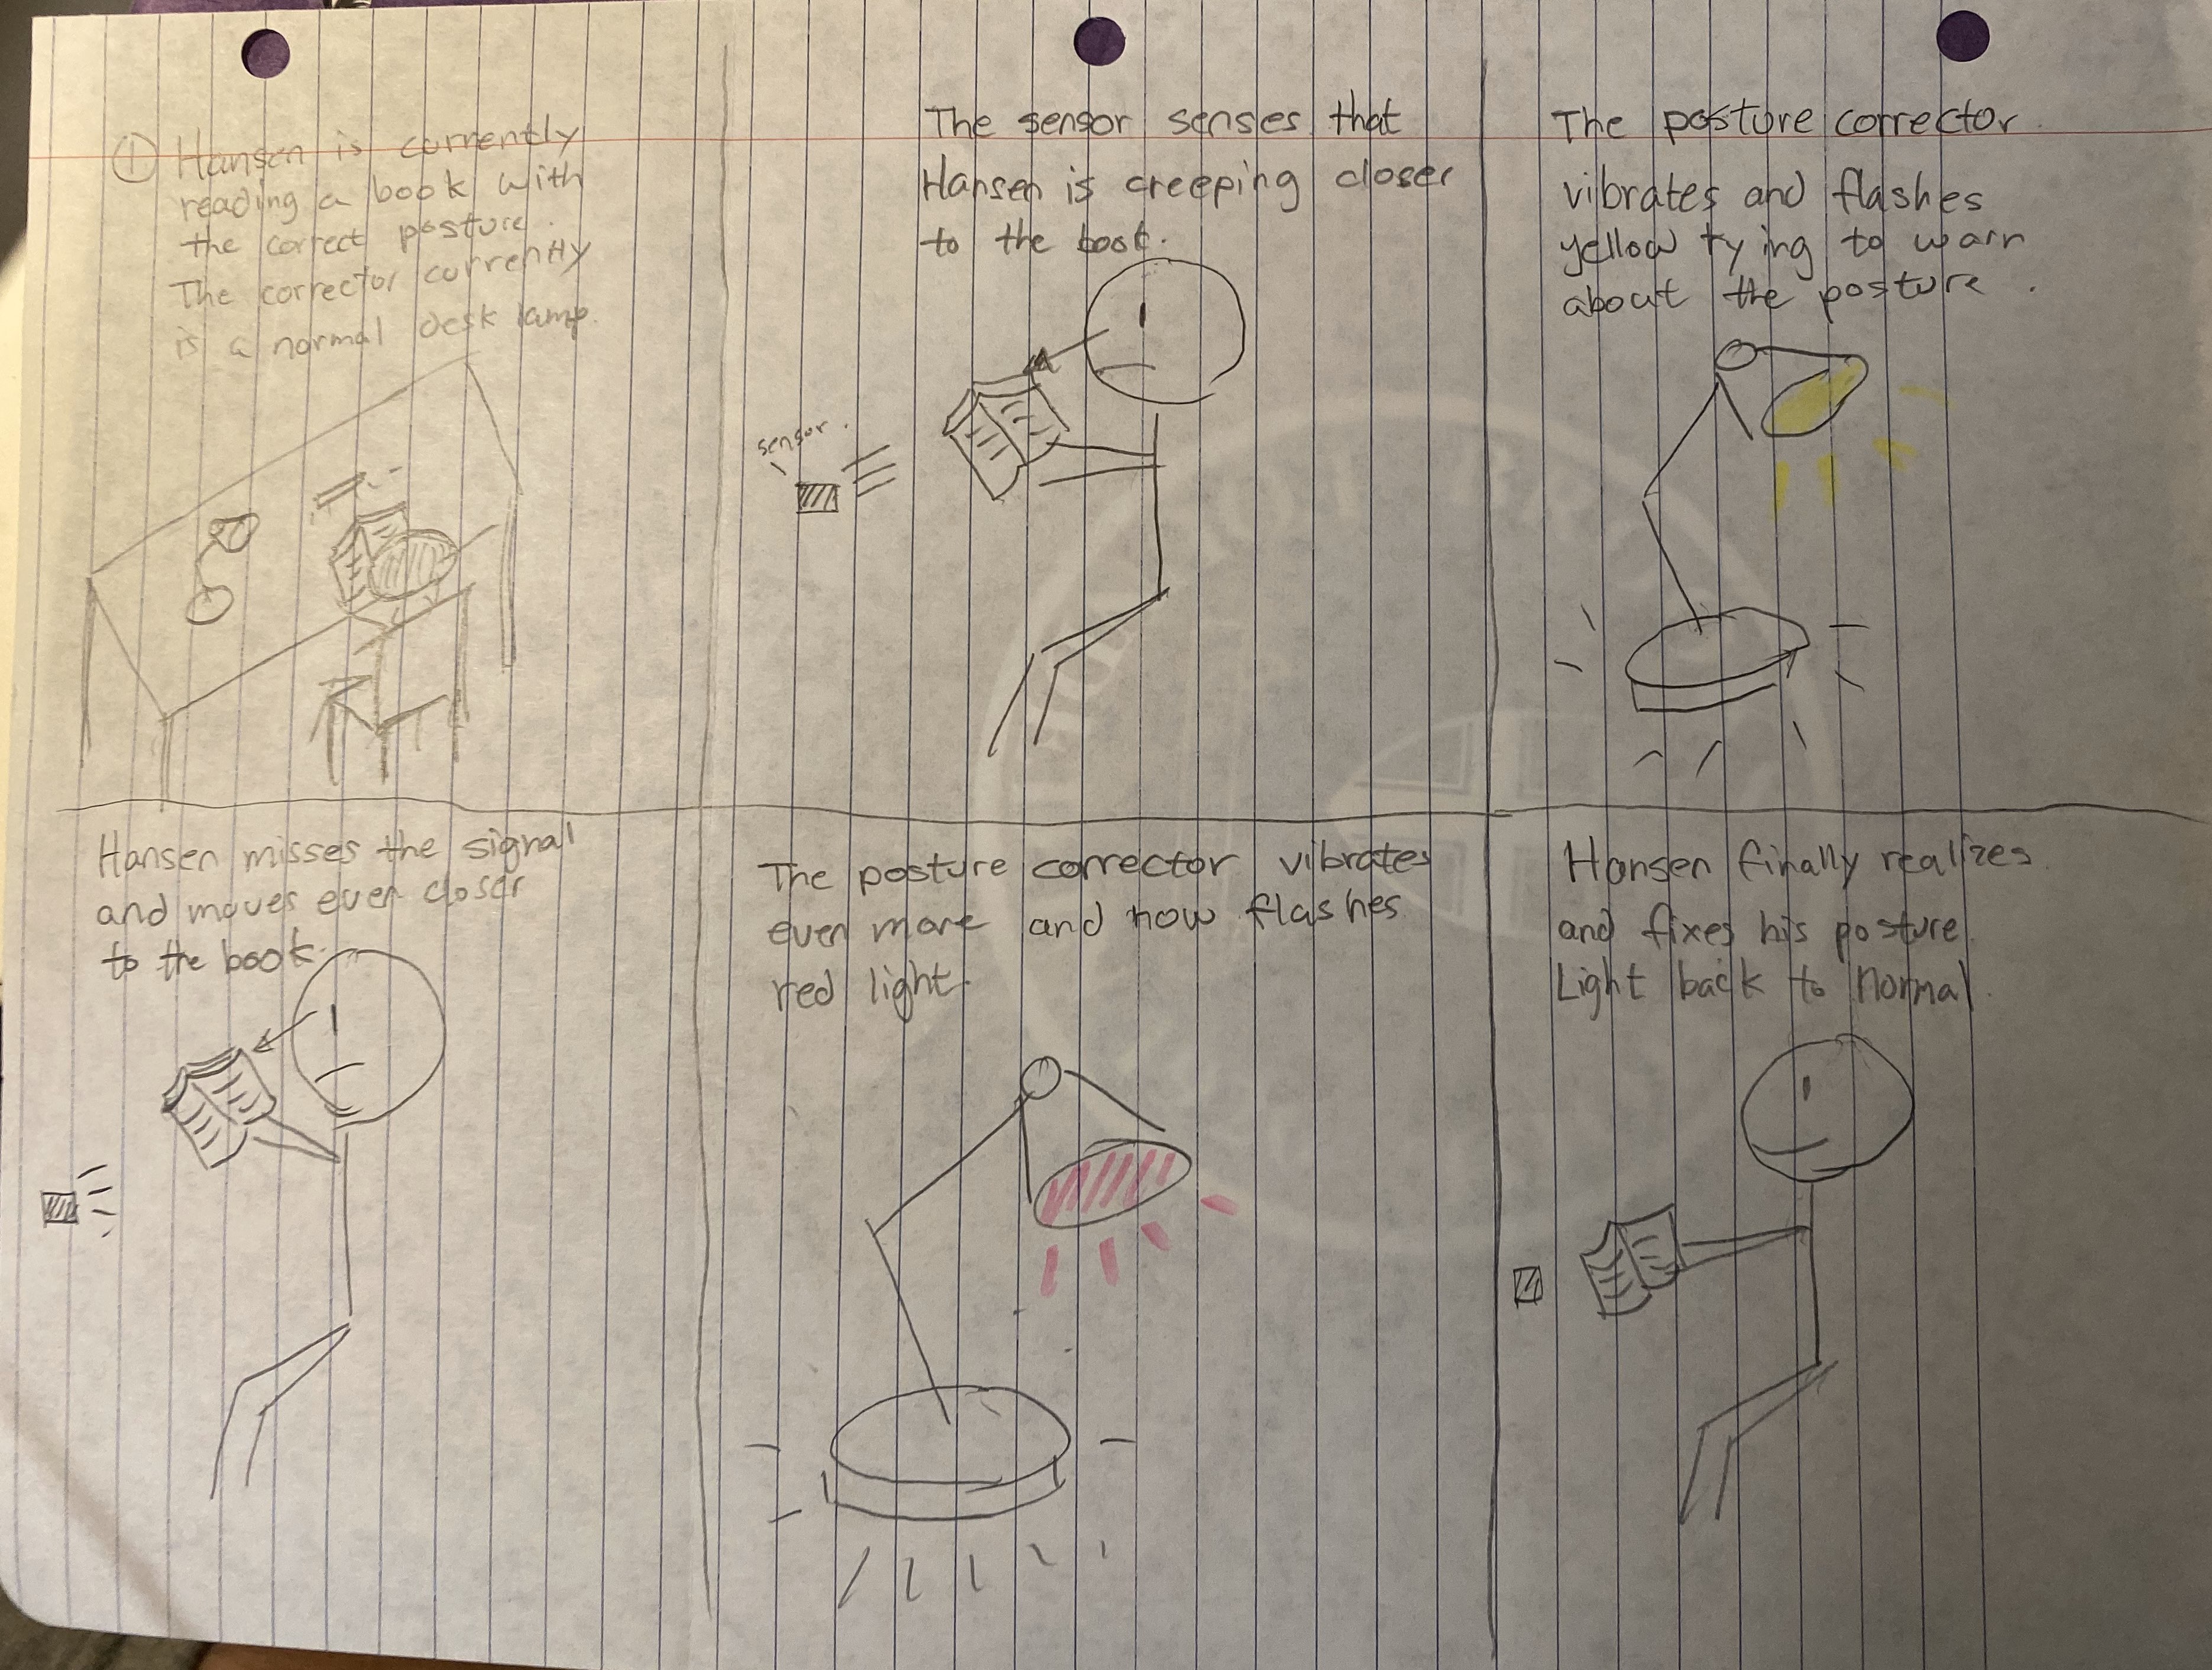 ① Hansen is currently
reading a book with
the correct posture.
The corrector currently
is a normal desk lamp.
The sensor senses that
Hansen is creeping closer
to the book.
sensor.
The posture corrector.
vibrates and flashes
yellow trying to warn
about the posture.
Hansen misses the signal
and moves even closer
to the book.
The posture corrector vibrates
even more and now flashes
red light.
Hansen finally realizes.
and fixes his posture.
Light back to normal.